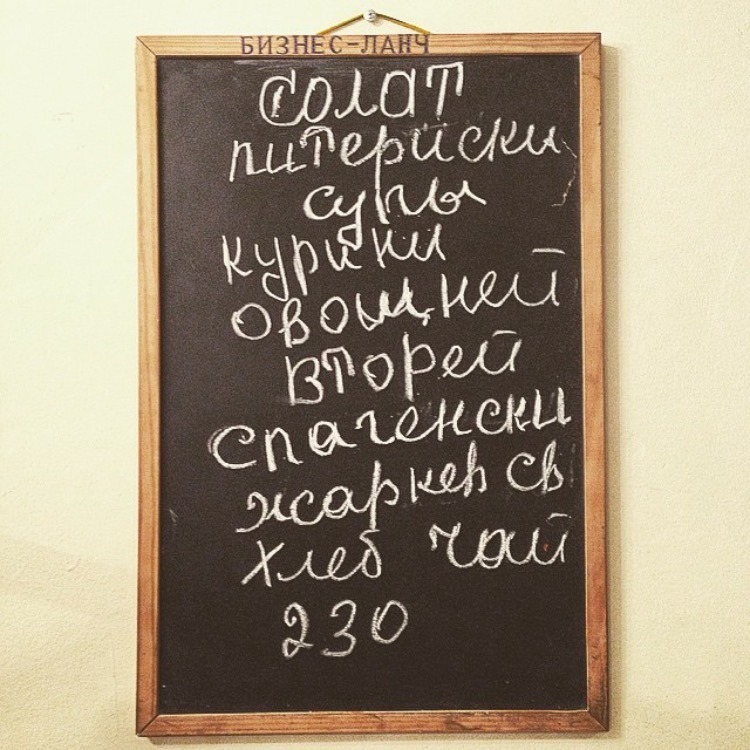 БИЗНЕС-ЛАНЧ
СОЛАТ
питериски
супы
курини
овощней
второй
спагенски
жаркев св
хлеб чай
230